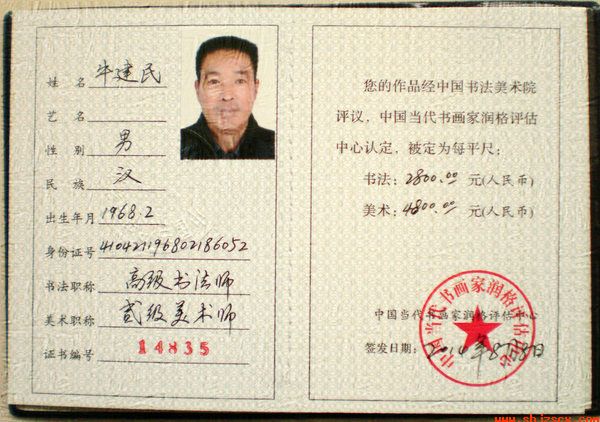 姓名 牛建民
艺名
性别 男
民族 汉
出生年月 1968.2
身份证号 410421196802186052
书法职称 高级书法师
美术职称 贰级美术师
证书编号 14835
您的作品经中国书法美术院
评议，中国当代书画家润格评估
中心认定，被定为每平尺：
书法：2800.00 元(人民币)
美术：4800.00 元(人民币)
中国当代书画家润格评估中心
签发日期：
中国当代书画家润格评估中心
www.shjzscx.com